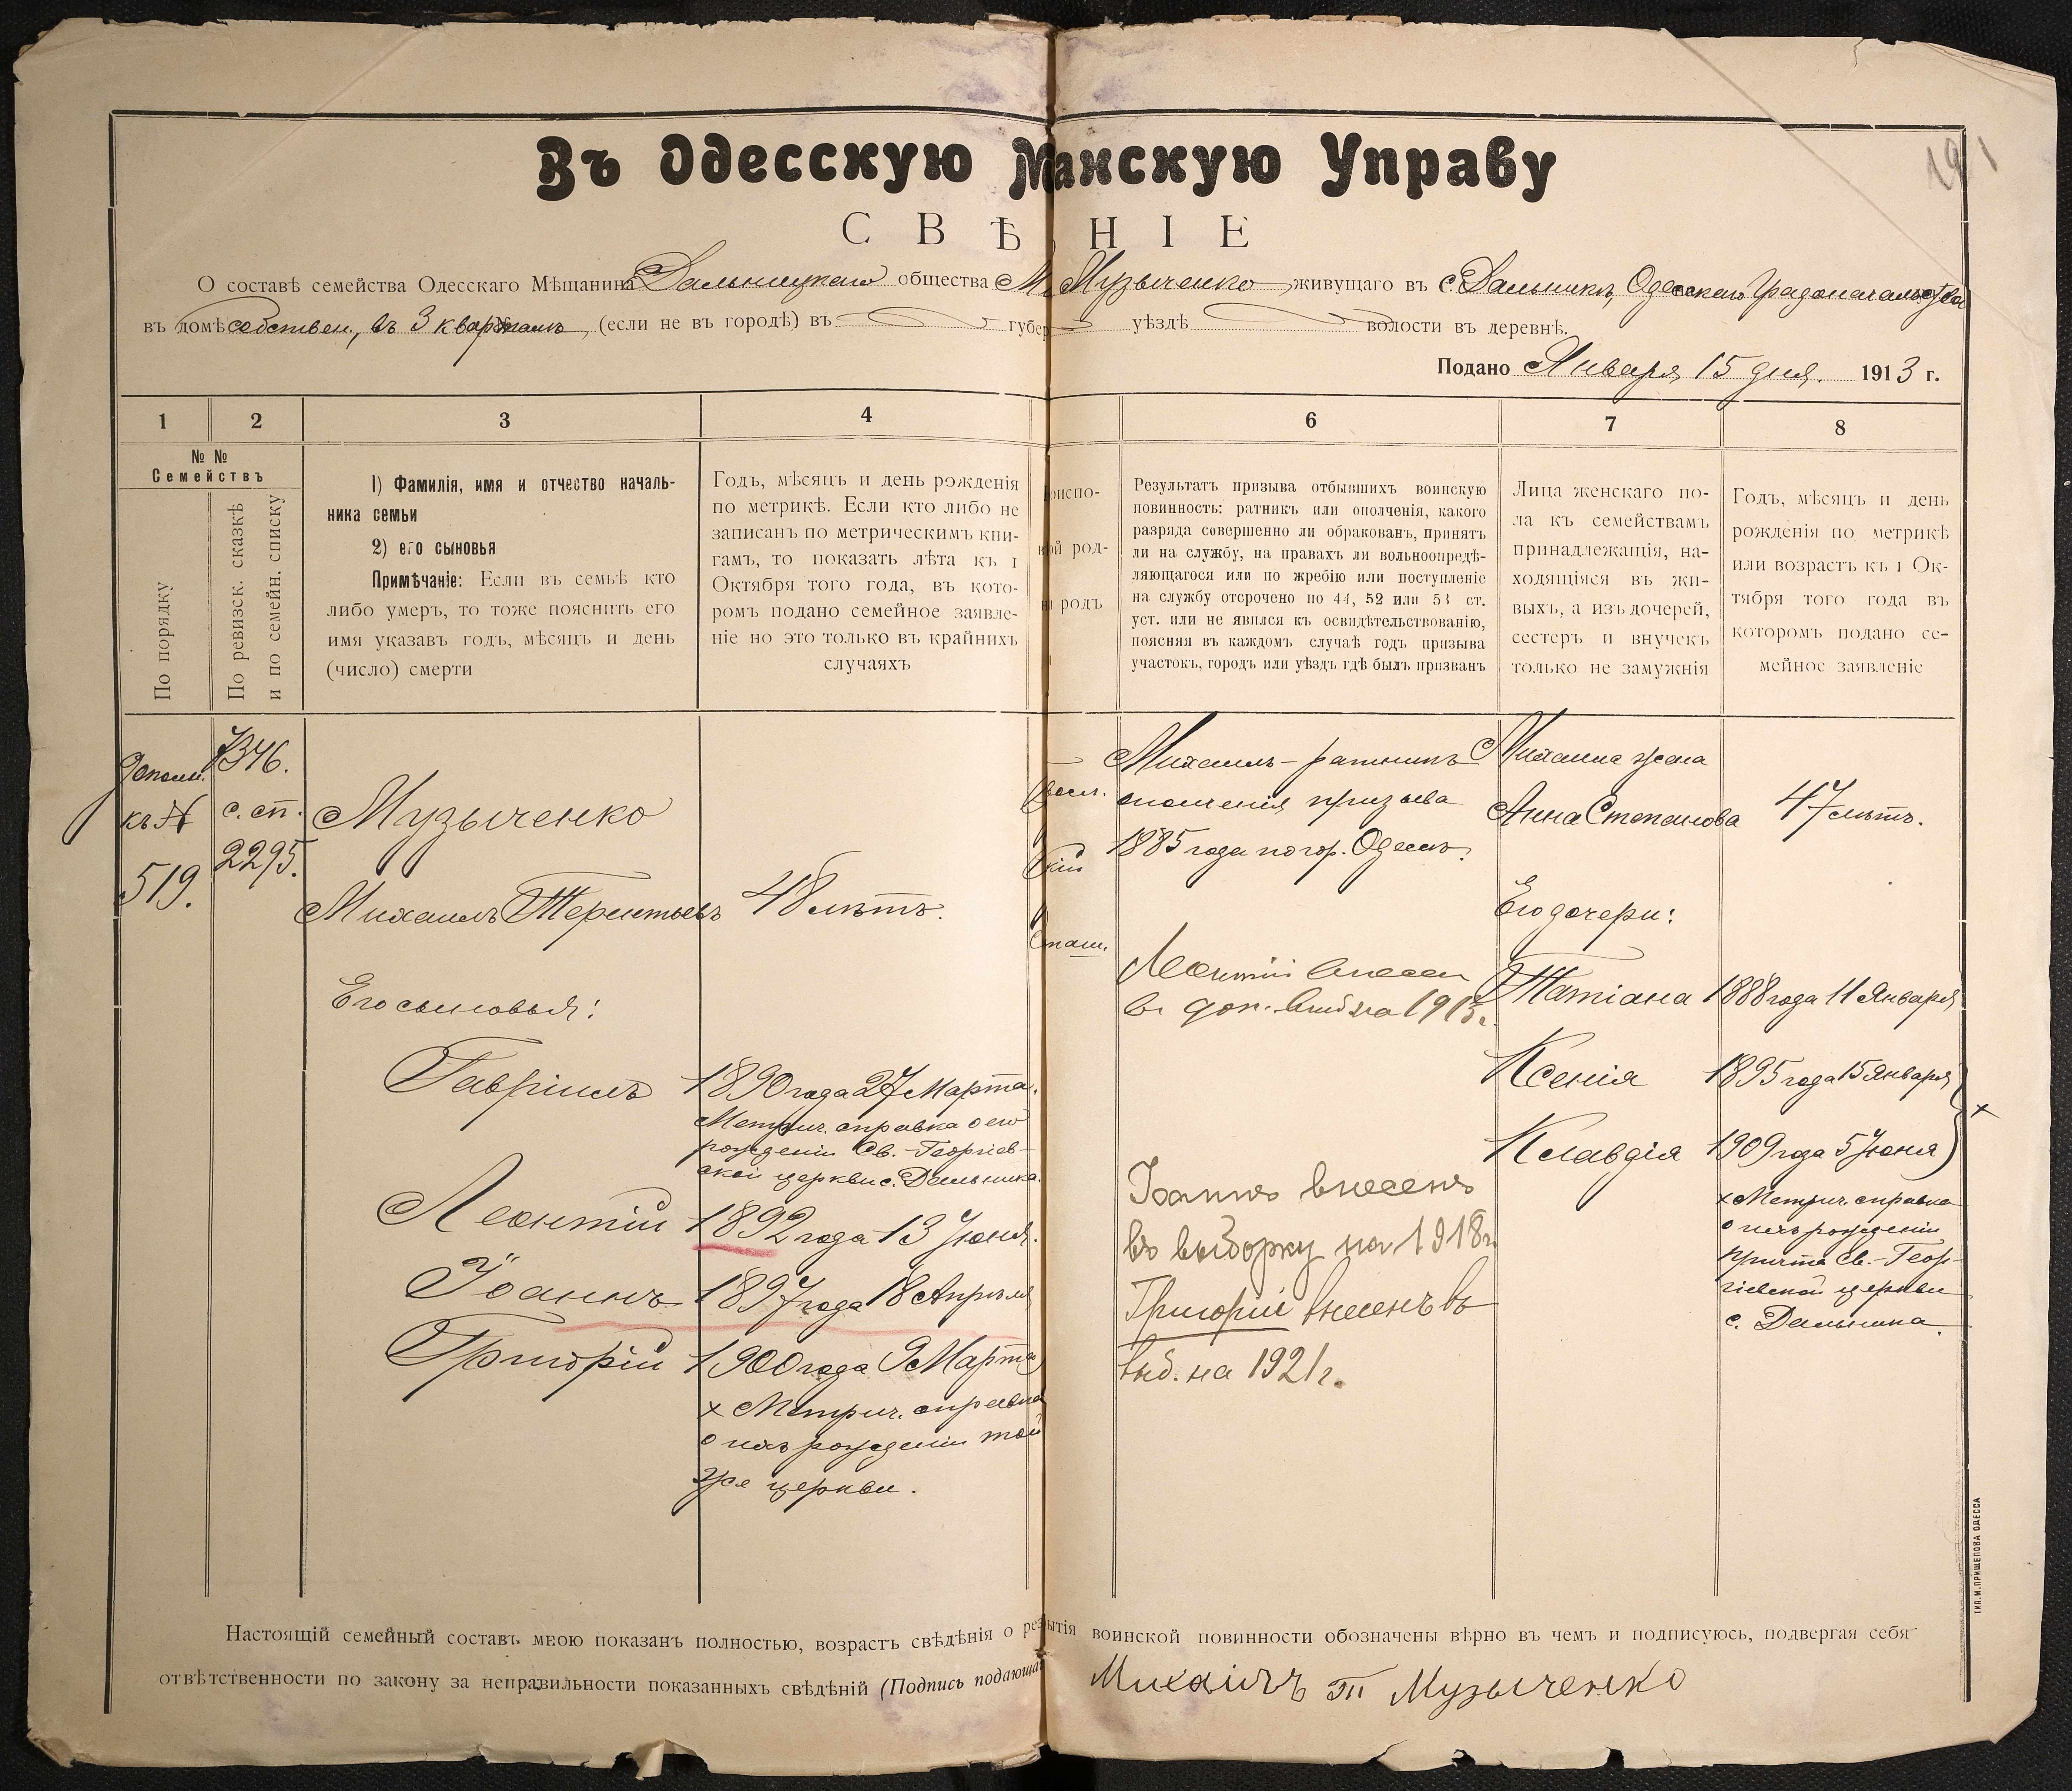 191
Въ Одесскую М анскую Управу
С В Ѣ Н І Е
О составѣ семейства Одесскаго Мѣщанина Дальницкаго общества М. Музыченко живущаго въ с. Дальникѣ, Одесскаго Градоначальства
въ домѣ собствен., въ 3 кварталѣ, (если не въ городѣ) въ губер уѣздѣ волости въ деревнѣ.
Подано Января 15 дня. 1913 г.
1 2 3 4 6 7 8
№ №
Семействъ
По порядку
По ревизск. сказкѣ
и по семейн. списку
1) Фамилія, имя и отчество началь-
ника семьи
2) его сыновья
Примѣчаніе: Если въ семьѣ кто
либо умеръ, то тоже пояснить его
имя указавъ годъ, мѣсяцъ и день
(число) смерти
Годъ, мѣсяцъ и день рожденія
по метрикѣ. Если кто либо не
записанъ по метрическимъ кни-
гамъ, то показать лѣта къ 1
Октября того года, въ кото-
ромъ подано семейное заявле-
ніе но это только въ крайнихъ
случаяхъ
оиспо-
ой род-
родъ
Результатъ призыва отбывшихъ воинскую
повинность: ратникъ или ополченія, какого
разряда совершенно ли обракованъ, принятъ
ли на службу, на правахъ ли вольноопредѣ-
ляющагося или по жребію или поступленіе
на службу отсрочено по 44, 52 или 53 ст.
уст. или не явился къ освидѣтельствованію,
поясняя въ каждомъ случаѣ годъ призыва
участокъ, городъ или уѣздъ гдѣ былъ призванъ
Лица женскаго по-
ла къ семействамъ
принадлежащія, на-
ходящіяся въ жи-
выхъ, а изъ дочерей,
сестеръ и внучекъ
только не замужнія
Годъ, мѣсяцъ и день
рожденія по метрикѣ
или возрастъ къ 1 Ок-
тября того года въ
которомъ подано се-
мейное заявленіе
Дополн.
къ №
519.
7346.
с. сп.
2295.
Музыченко
Михаилъ Терентьевъ
48 лѣтъ.
Его сыновья:
Гавріилъ
1890 года 27 Марта.
Метрич. справка о его
рожденіи Св.-Георгіев-
ской церкви с. Дальника.
Леонтій
1892 года 13 Іюня.
Іоаннъ
1897 года 18 Апрѣля
Григорій
1900 года 9 Марта
х Метрич. справка
о ихъ рожденіи той
же церкви.
Михаилъ – ратникъ
ополченія призыва
1885 года по гор. Одессѣ.
Леонтій внесен
в доп. 1913г.
Іоаннъ внесенъ
въ выборку на 1918г.
Григорій внесенъ въ
выб. на 1921 г.
Михаила жена
Анна Степанова
47 лѣтъ.
Его дочери:
Татіана
1888 года 11 Января
Ксенія
1895 года 15 Января
х
Клавдія
1909 года 5 Іюня
х Метрич. справка
о ихъ рожденіи
причта Св.-Геор-
гіевской церкви
с. Дальника.
Настоящій семейный составъ мною показанъ полностью, возрастъ свѣдѣнія о рез ытія воинской повинности обозначены вѣрно въ чемъ и подписуюсь, подвергая себя
отвѣтственности по закону за неправильности показанныхъ свѣдѣній (Подпись подающа Михаілъ Т Музыченко
ТИП. М. ПРИЩЕПОВА ОДЕССА